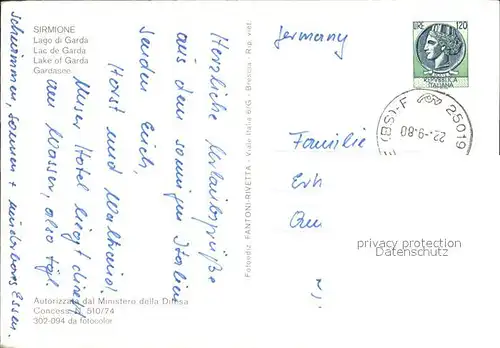 SIRMIONE
Lago di Garda
Lac de Garda
Lake of Garda
Gardasee
Herzliche Urlaubsgrüße
aus dem sonnigen Italien
senden Euch,
Horst und Waltraud.
Unser Hotel liegt direkt
am Wasser, also tägl.
schwimmen, sonnen + wunderbares Essen.
Autorizzata dal Ministero della Difesa
Concess. N. 510/74
302-094 da fotocolor
Fotoediz. FANTONI-RIVETTA - Viale Italia 6/G - Brescia - Rip. viet.
Germany
LIRE 120
REPVBBLICA
ITALIANA
25019
(BS)-F
22-9-80
Familie
Erh
privacy protection
Datenschutz